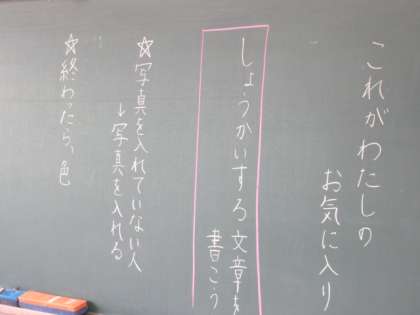 これがわたしの
お気に入り
しょうかいする文章を
書こう
☆写真を入れていない人
↓写真を入れる
☆終わったら、色